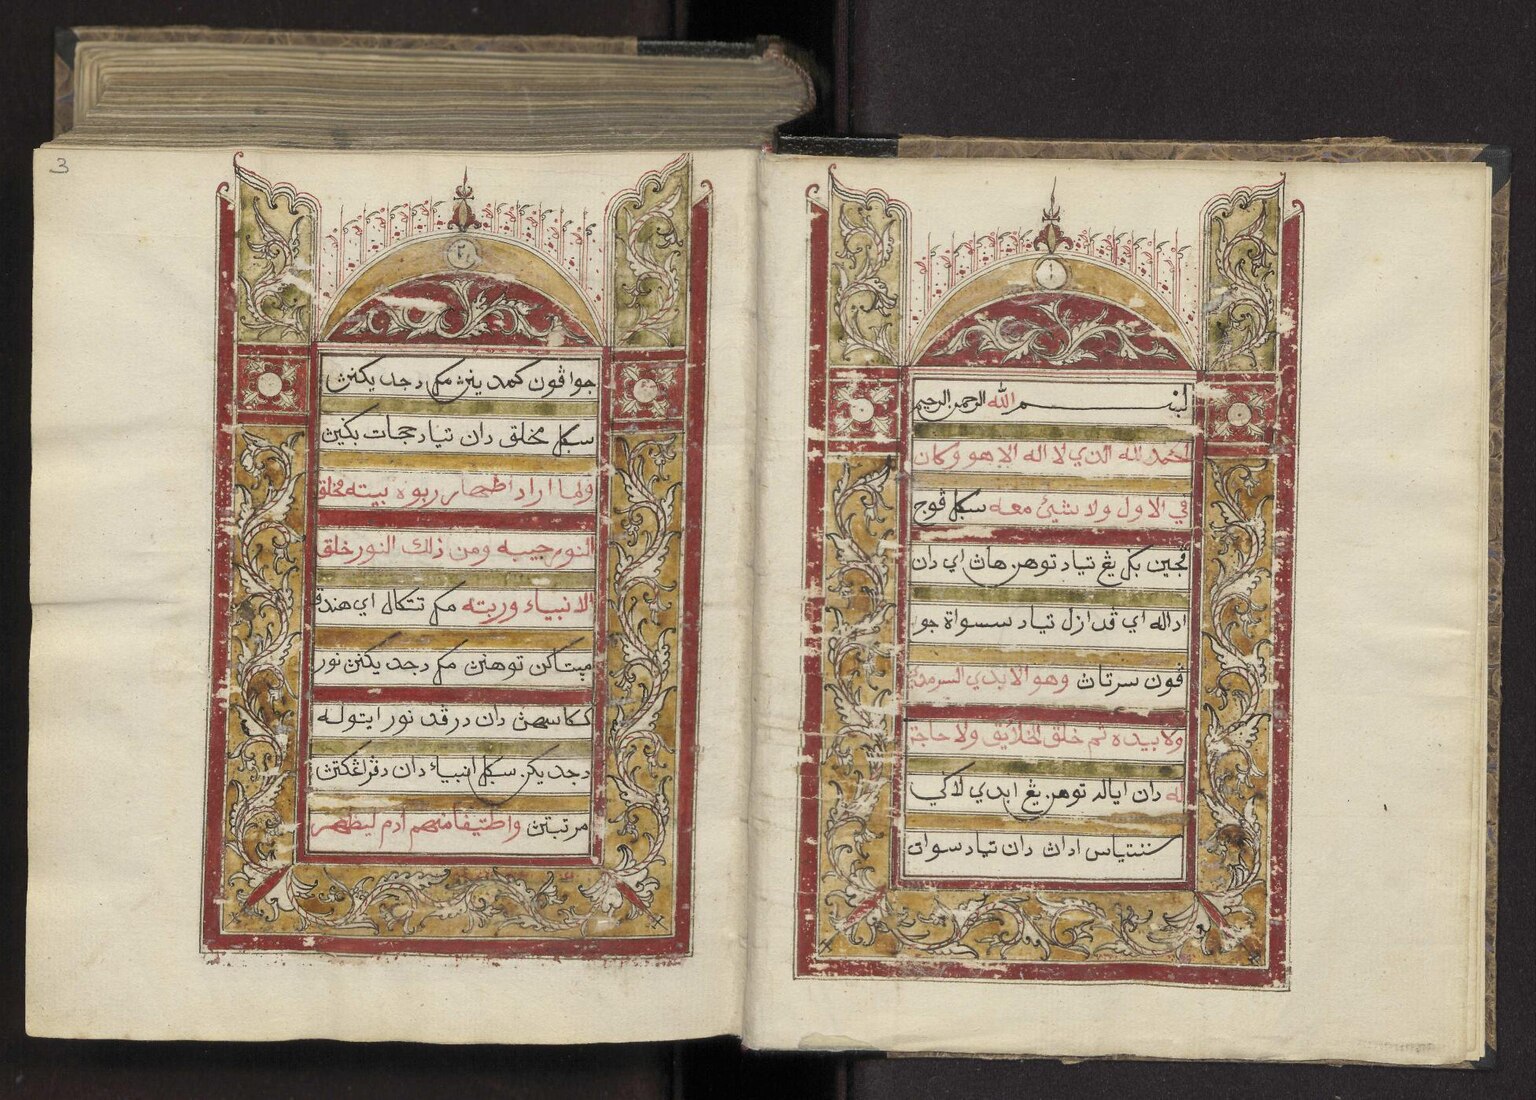 بسم الله الرحمن الرحيم
الحمد لله الذي لا اله الا هو وكان
في الاول ولا شيئ معه سكل ڤوج
ڤجين بكي يڠ تياد توهن هاڽ اي دان
اداله اي ڤد ازل تياد سسواة جو
ڤون سرتاڽ وهو الابدي السرمدي
ثم خلق الخلائق ولا حاجة
له دان اياله توهن يڠ ابدي لاكي
سنتياس اداڽ دان تياد سوات
جوا ڤون كمدين مك دجديكنڽ
سكل مخلق دان تياد حجات بكين
ولما اراد اظهار ربوبيته خلق
النور حبيبه ومن ذلك النور خلق
الانبياء ورتبته مك تتكال اي هندق
مپتاكن توهنڽ مك دجديكنڽ نور
ككاسهڽ دان درڤد نور ايتوله
دجديكن سكل انبياء دان دڤراڠكتڽ
مرتبتڽ واصطفا منهم ادم ليظهر
3